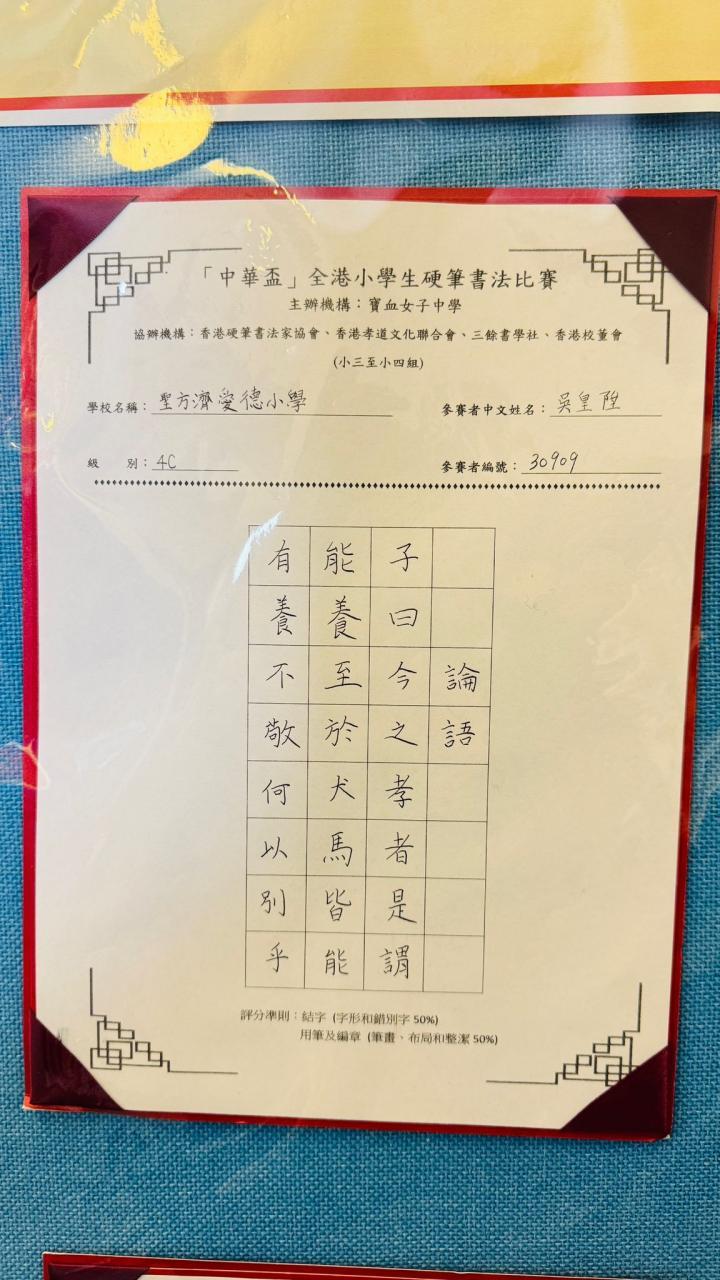 「中華盃」全港小學生硬筆書法比賽
主辦機構：寶血女子中學
協辦機構：香港硬筆書法家協會、香港孝道文化聯合會、三餘書學社、香港校董會
(小三至小四組)
學校名稱：聖方濟愛德小學 參賽者中文姓名：吳皇陞
級 別：4C 參賽者編號：30909
論語
子曰今之孝者是謂
能養至於犬馬皆能
有養不敬何以別乎
評分準則：結字 (字形和錯別字 50%)
用筆及編章 (筆畫、布局和整潔 50%)